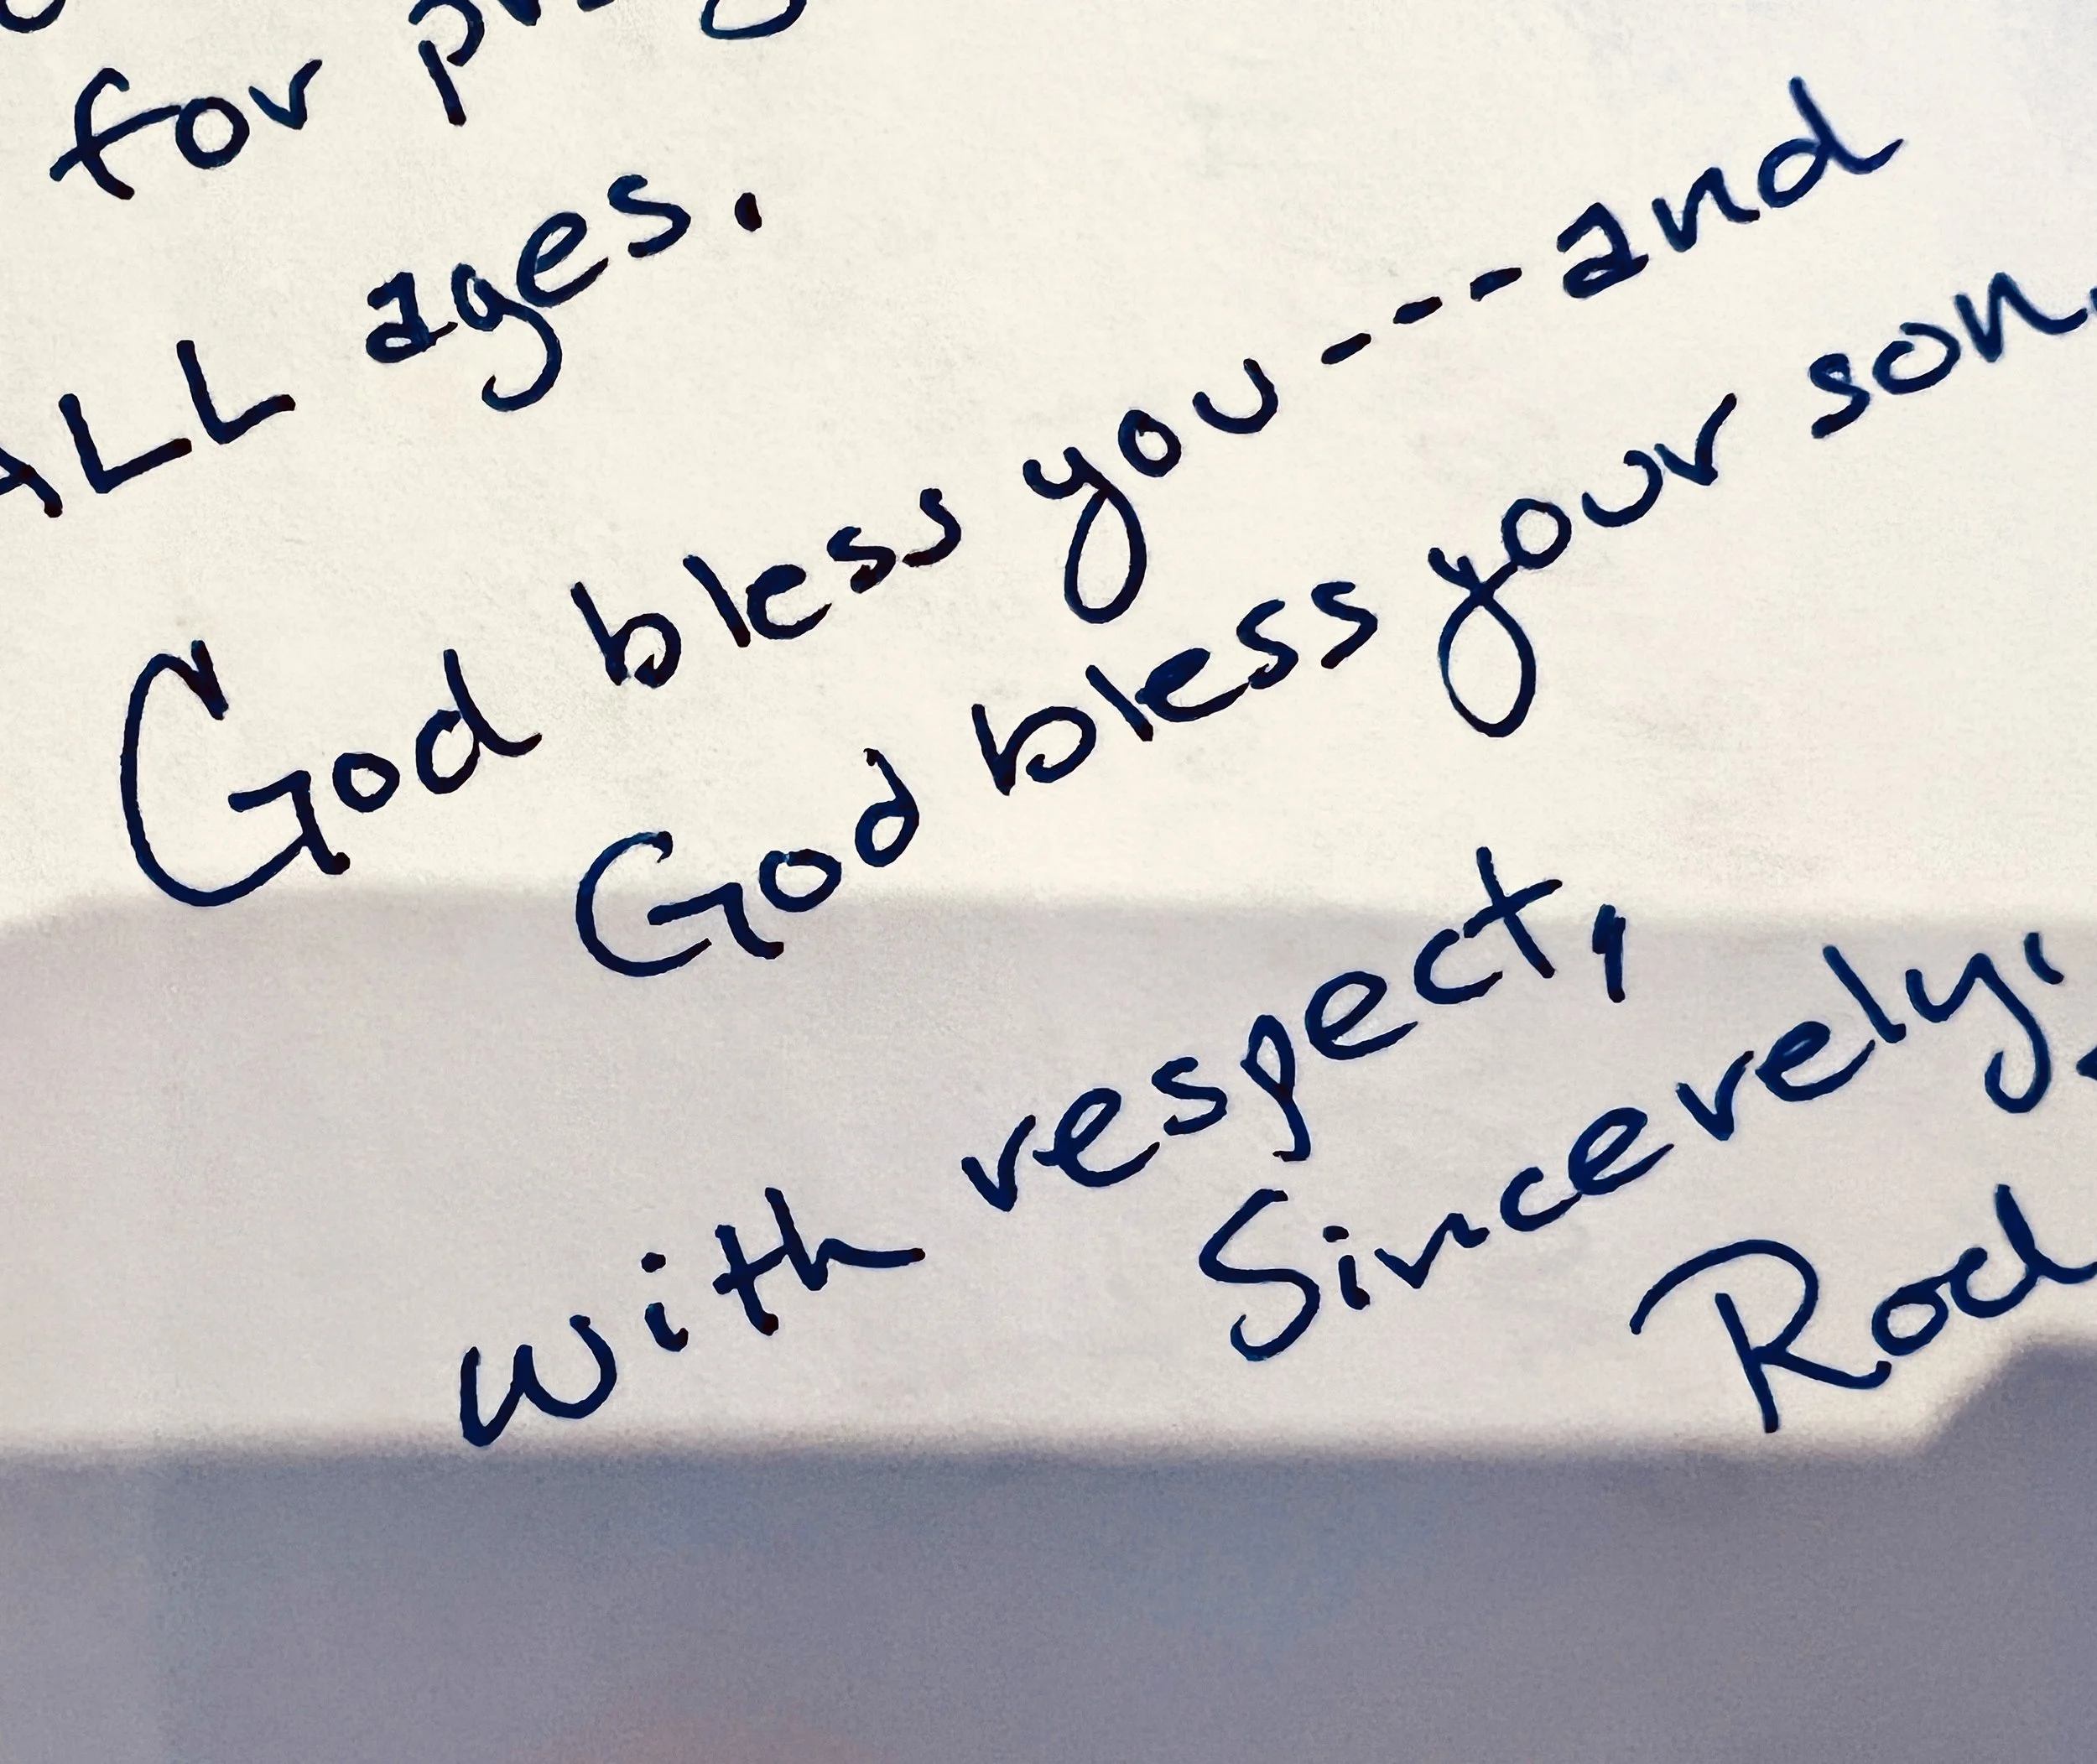 for
ALL ages.
God bless you---and
God bless your son.
with respect,
Sincerely,
Rod